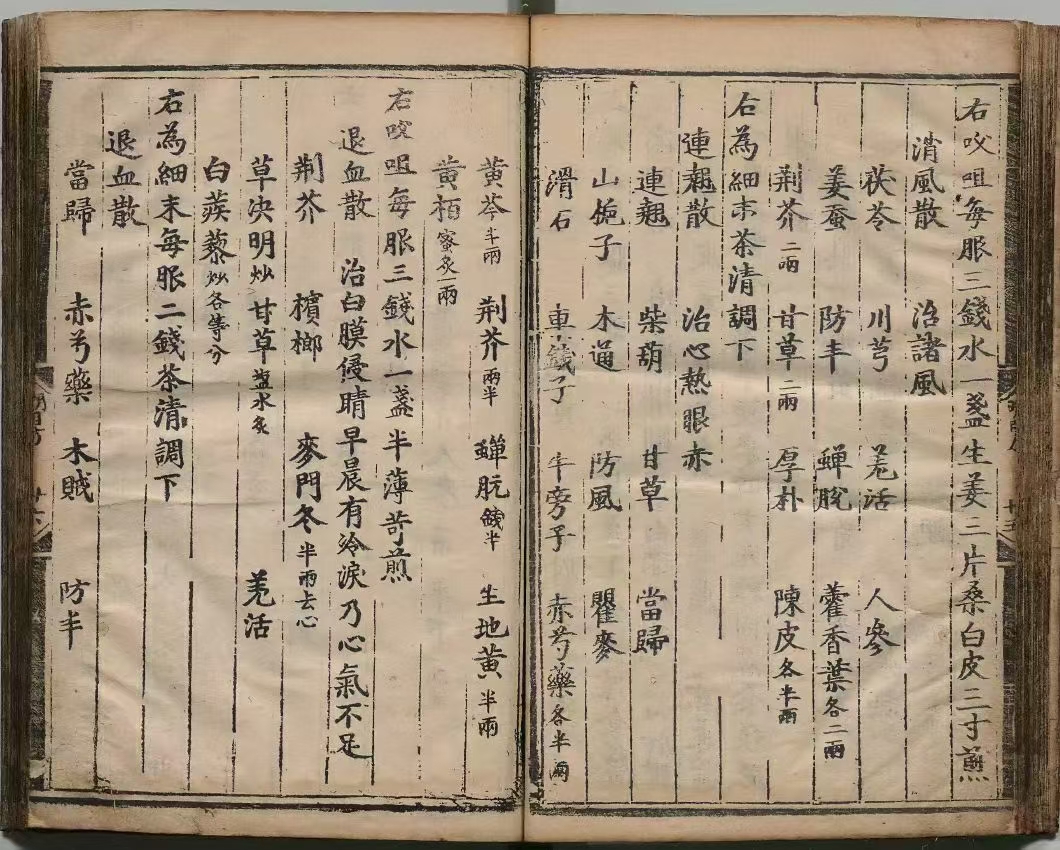 右㕮咀每服三錢水一盞生姜二片桑白皮二寸煎
消風散 治諸風
茯苓 川芎 羌活 人參
姜蚕 防丰 蟬脱 藿香葉各二兩
荆芥二兩 甘草二兩 厚朴 陳皮各半兩
右為細末茶清調下
連翹散 治心熱眼赤
連翹 柴葫 甘草 當歸
山梔子 木通 防風 瞿麥
滑石 車錢子 牛旁子 赤芍藥各半兩
黄芩半兩 荆芥兩半 蟬脱錢半 生地黄半兩
黄栢蜜炙一兩
右㕮咀每服三錢水一盞半薄苛煎
退血散 治白膜侵睛早晨有冷淚乃心氣不足
荆芥 檳榔 麥門冬半兩去心
草决明炒 甘草盐水炙 羌活
白蒺藜炒各等分
右為細末每服二錢茶清調下
退血散
當歸 赤芍藥 木賊 防丰